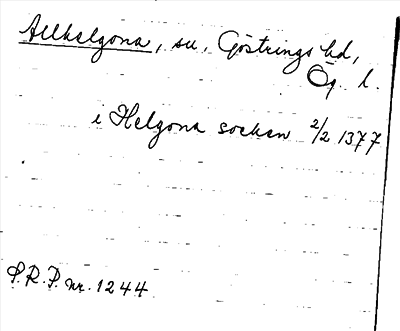 Allhelgona, sn, Göstrings hd,
Ög. l.
i Helgona socken 2/2 1377
S.R.P. nr. 1244